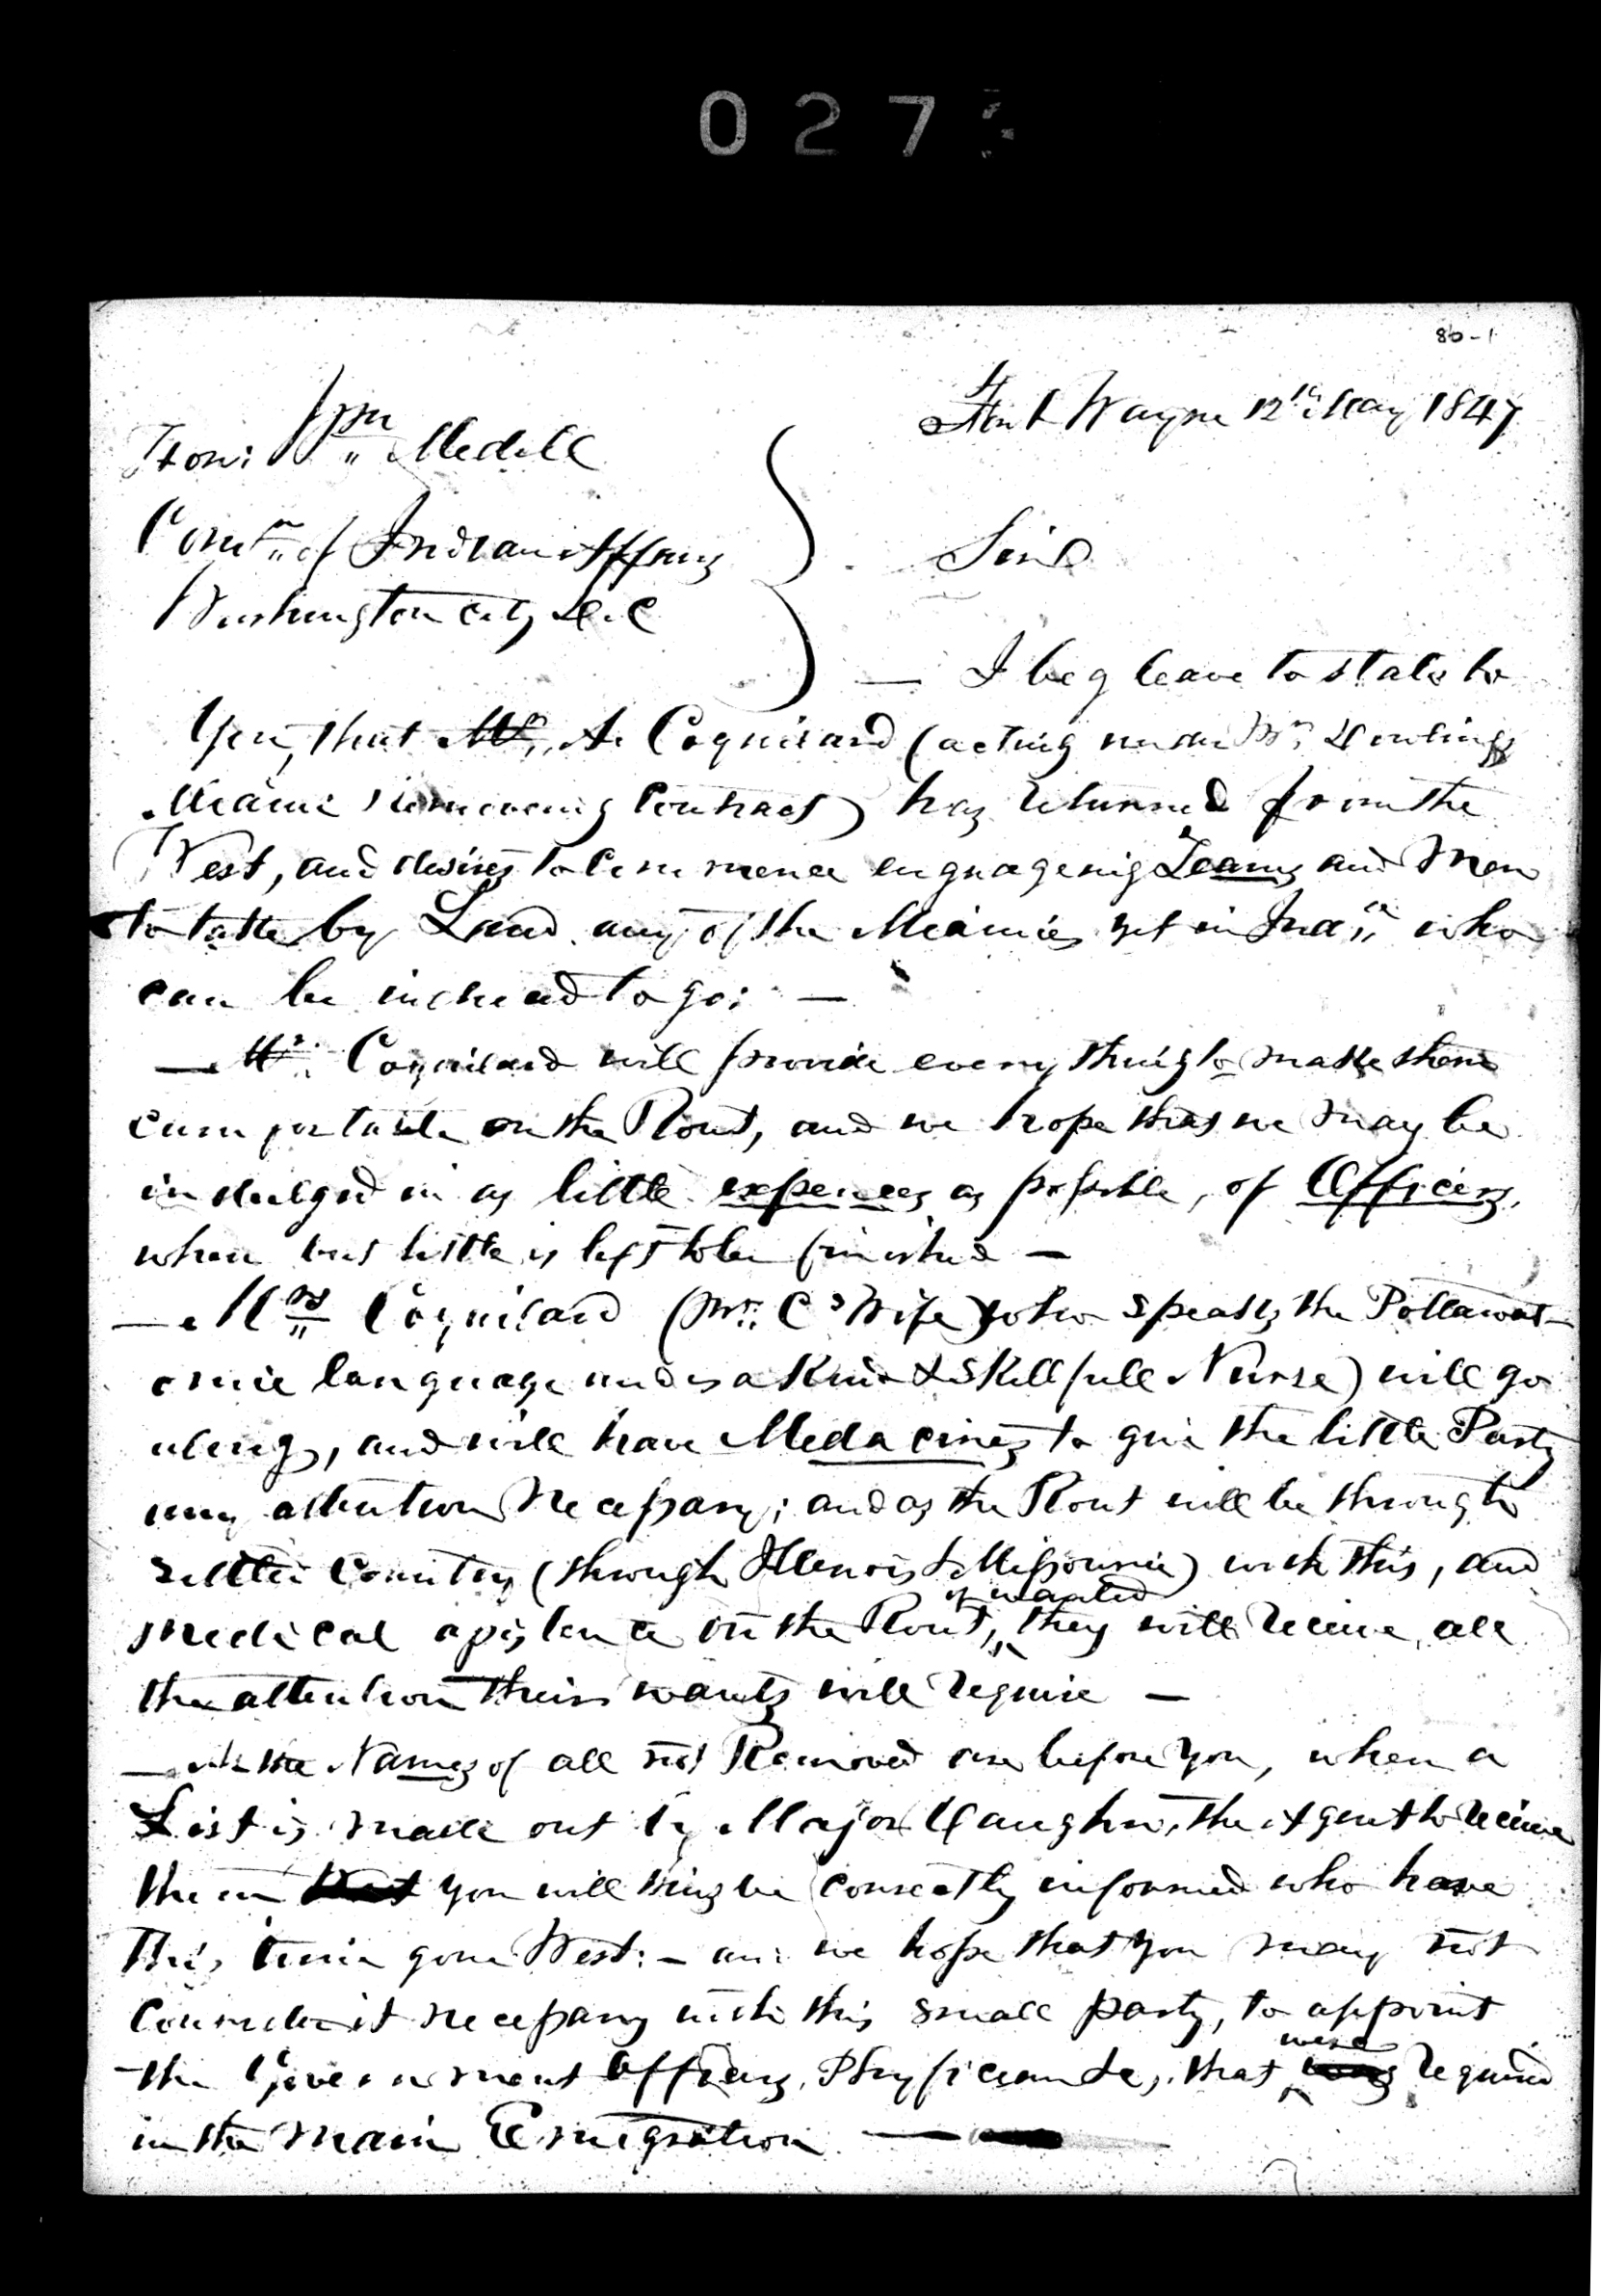 0273
86-1
Fort Wayne 12th May 1847
Hon: Wm Medill
Comr of Indian Affairs
Sir
Washington City D.C
— I beg leave to state to
You, that Mr. A. Coquilard (acting under Mr. Dowlings
Miami removing Contract) has returned from the
West, and desires to commence enguageing Teams and Men
to take by Land any of the Miamies yet in Inda who
can be induced to go: —
— Mr. Coquilard will provide every thing to make them
cumfortable on the Rout, and we hope that we may be
indulged in as little expences as possible, of Officers,
when but little is left to be finished —
— Mrs Coquilard (Mr. C's Wife) who speaks the Pottawat-
omie language and is a kind & Skillfull Nurse) will go
along, and will have Medacines to give the little Party
any attention Necessary; and as the Rout will be through
settled Country (through Illenois & Missourie) with this, and
medical assistance on the Rout, if wanted they will receive all
the attention their wants will require —
— As the Names of all not Removed are before You, when a
List is made out by Major Vaughn, the Agent to receive
them you will thus be correctly informed who have
this time gone West: — and we hope that you may not
Consider it necessary with this small party, to appoint
the Government Officers, Physician &c, that were required
in the main Emigration —